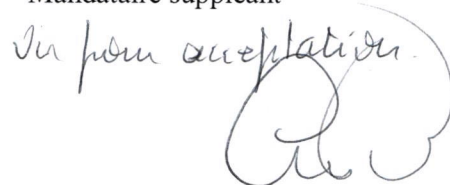 Mandataire suppléant
Vu pour acceptation.